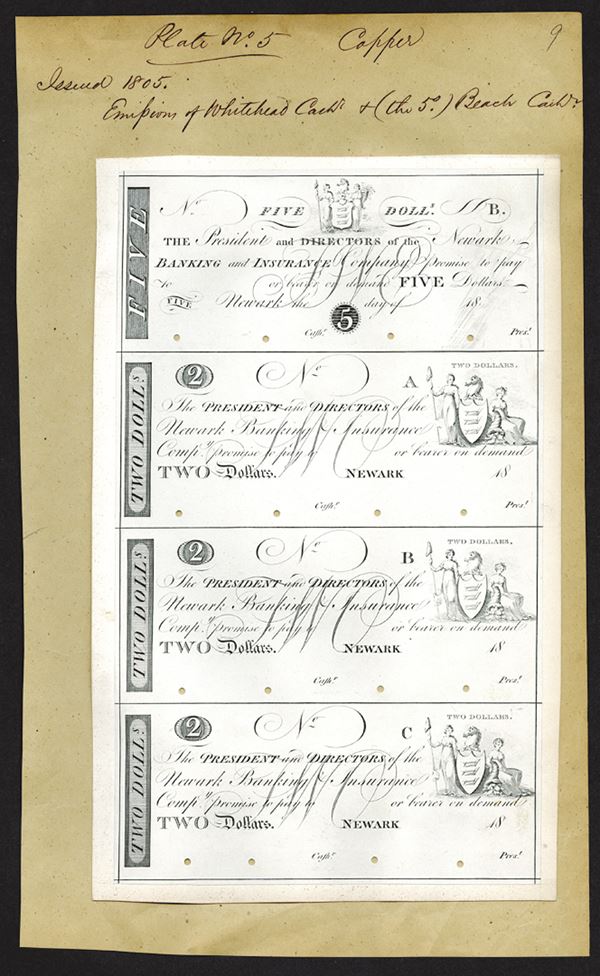 Plate No. 5 Copper 9
Issued 1805.
Emissions of Whitehead Cashr & (the 5s.) Beach Cashr
FIVE
No. FIVE DOLLs. B.
THE President and DIRECTORS of the Newark
BANKING and INSURANCE Company promise to pay
to or bearer on demand FIVE Dollars
FIVE Newark the day of 18
5
Cashr. Prest.
TWO DOLLs.
2 No. A TWO DOLLARS.
The PRESIDENT and DIRECTORS of the
Newark Banking & Insurance
Compy. promise to pay to or bearer on demand
TWO Dollars. NEWARK 18
Cashr. Prest.
TWO DOLLs.
2 No. B TWO DOLLARS.
The PRESIDENT and DIRECTORS of the
Newark Banking & Insurance
Compy. promise to pay to or bearer on demand
TWO Dollars. NEWARK 18
Cashr. Prest.
TWO DOLLs.
2 No. C TWO DOLLARS.
The PRESIDENT and DIRECTORS of the
Newark Banking & Insurance
Compy. promise to pay to or bearer on demand
TWO Dollars. NEWARK 18
Cashr. Prest.